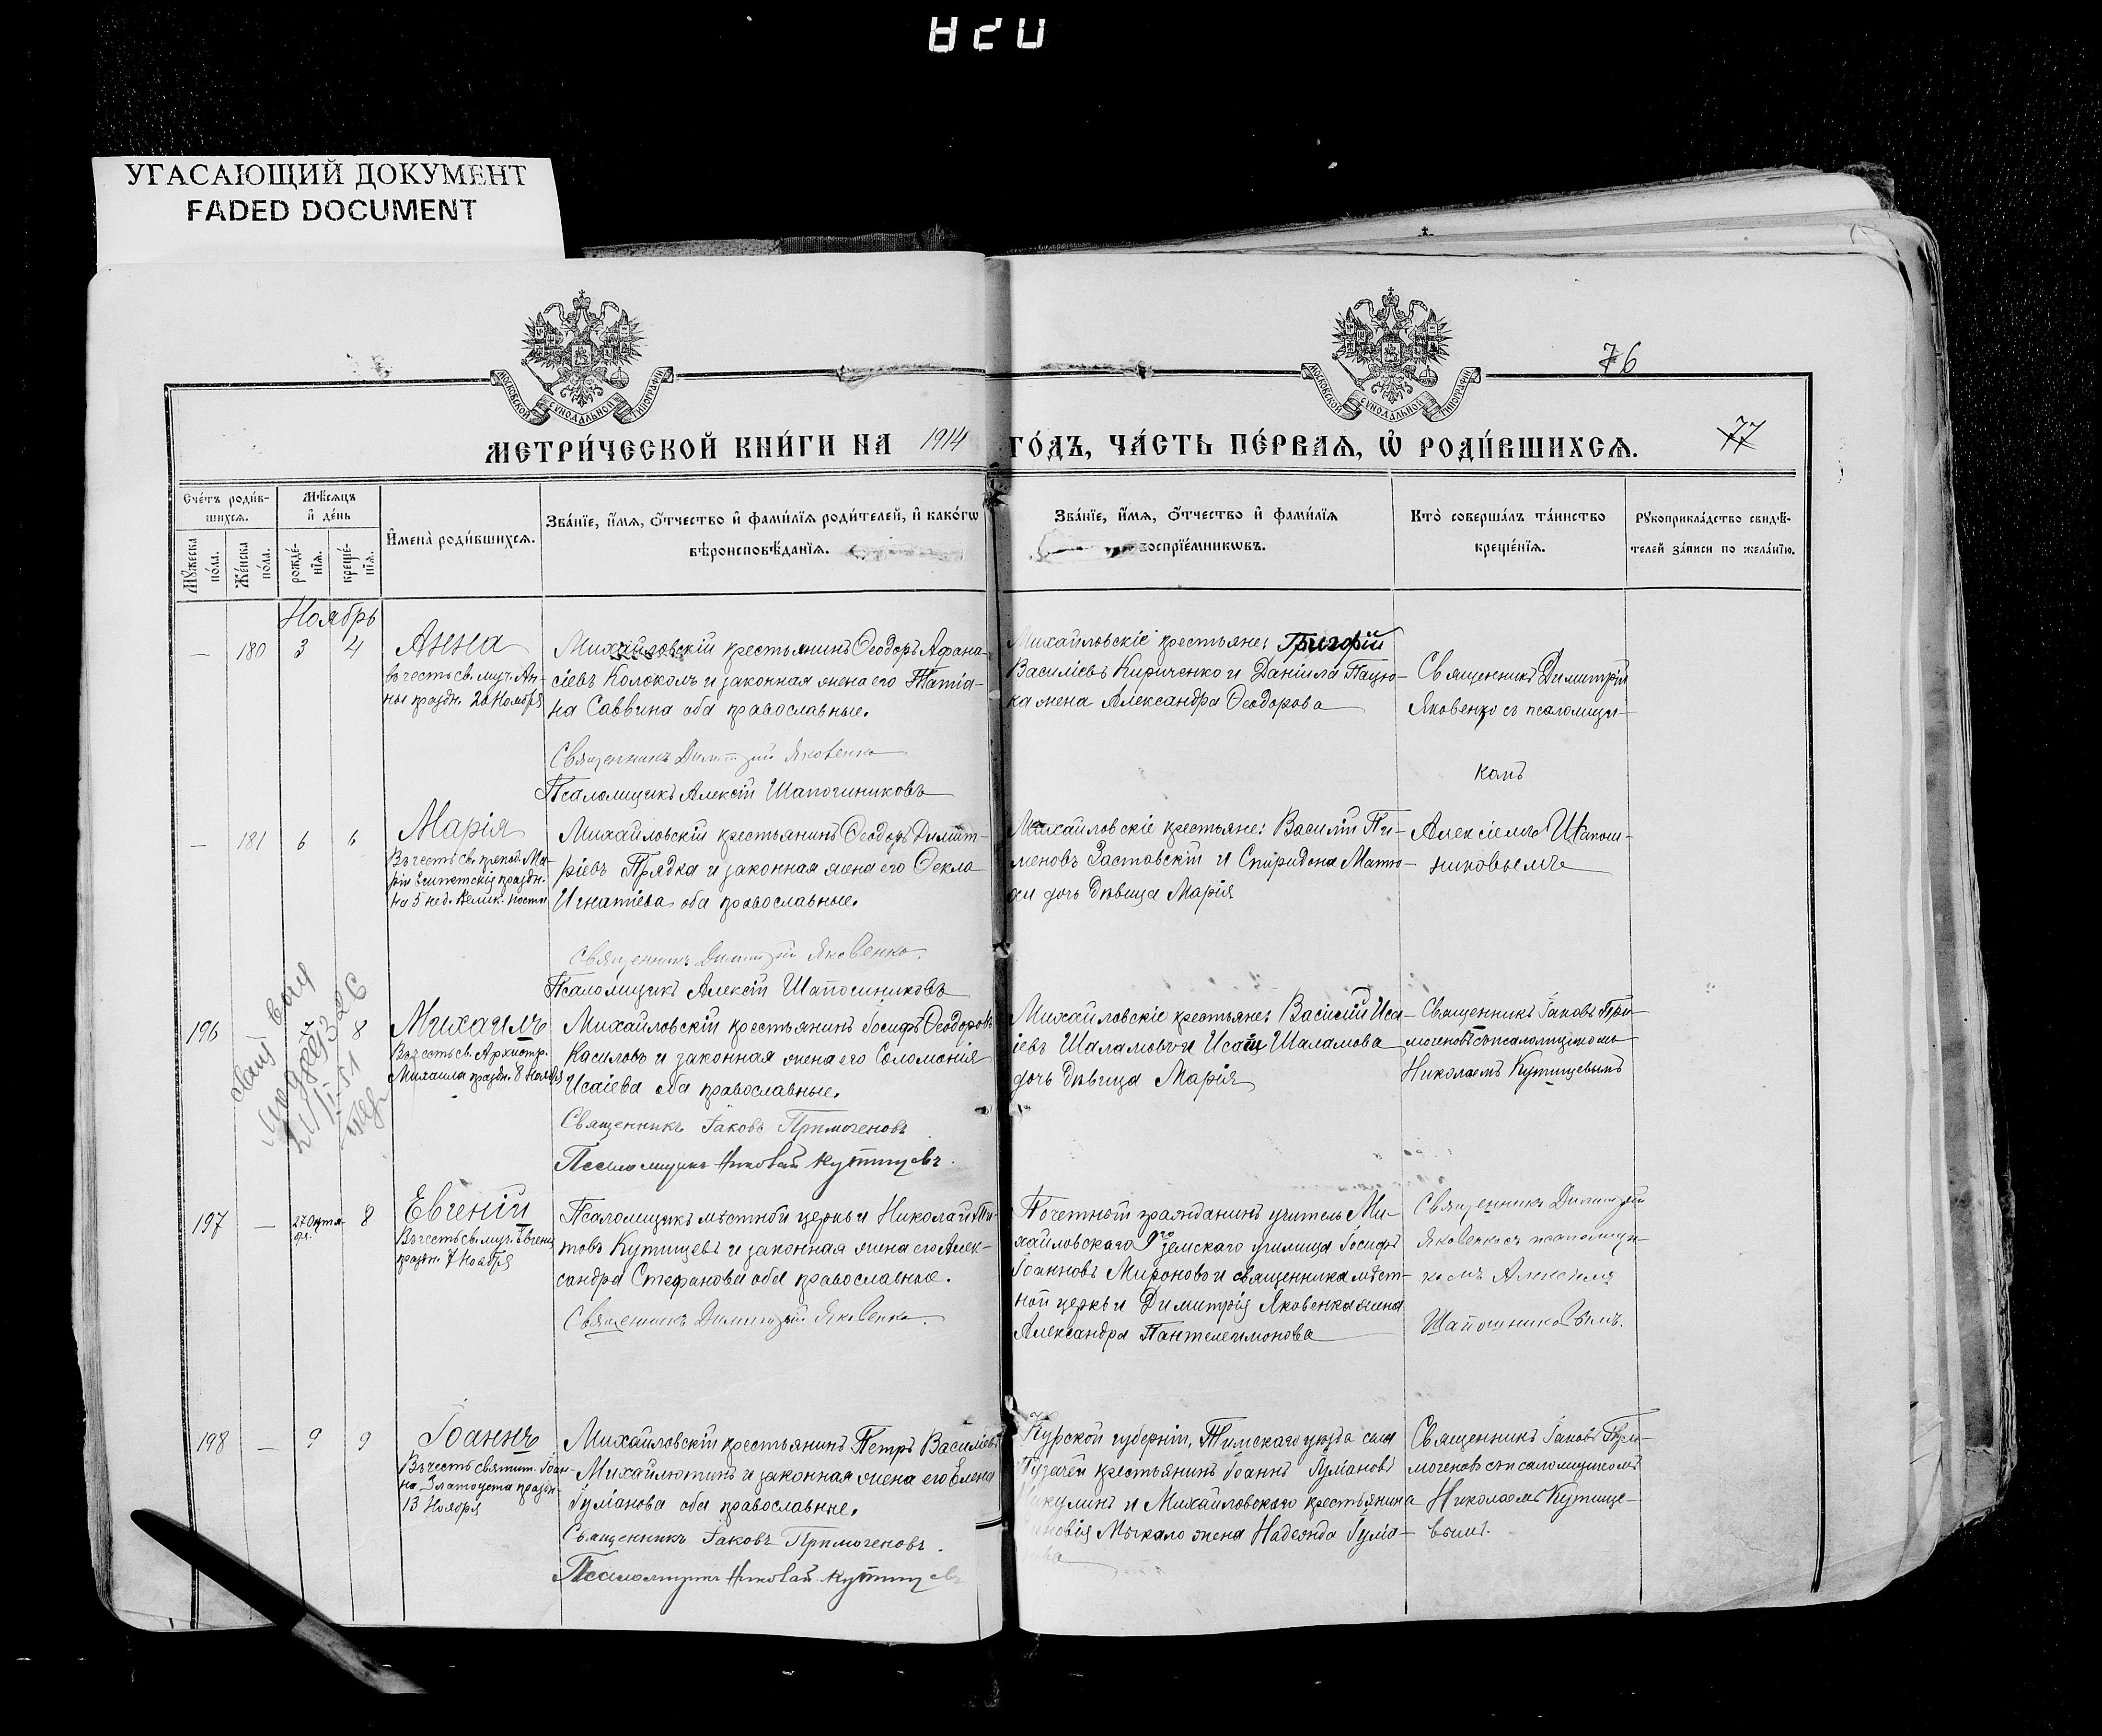 УГАСАЮЩИЙ ДОКУМЕНТ
FADED DOCUMENT
МОСКОВСКОЙ СѴНОДАЛЬНОЙ ТИПОГРАФІИ
МОСКОВСКОЙ СѴНОДАЛЬНОЙ ТИПОГРАФІИ
76
77
МЕТРИ́ЧЕСКОЙ КНИ́ГИ НА 1914 ГО́ДЪ, ЧА́СТЬ ПЕ́РВАѦ, Ѡ҆ РОДИ́ВШИХСѦ.
Сче́тъ роди́в-
шихсѧ.
Мѣ́сѧцъ
и҆ де́нь
Мꙋ́жеска
по́ла.
Же́нска
по́ла.
рожде́-
нїѧ.
креще́-
нїѧ.
И҆мена̀ роди́вшихсѧ.
Зва́нїе, и҆́мѧ, ѻ҆́тчество и҆ фами́лїѧ роди́телей, и҆ како́гѡ
вѣроисповѣ́данїѧ.
Зва́нїе, и҆́мѧ, ѻ҆́тчество и҆ фами́лїѧ
воспрїе́мникѡвъ.
Кто̀ соверша́лъ та́инство
креще́нїѧ.
Рꙋкоприкла́дство свидѣ́-
телей за́писи по жела́нїю.
Ноябрь
— 180 3 4
Анна
въ честь св. муч. Ан-
ны праздн. 20 Ноября
Михайловскій крестьянинъ Ѳеодоръ Афана-
сіевъ Колоколъ и законная жена его Татіа-
на Саввина оба православные.
Священникъ Димитрій Яковенко
Псаломщикъ Алексій Шапошниковъ
Михайловскіе крестьяне: Григорій
Василіевъ Кириченко и Даніила Пацю-
ка жена Александра Ѳеодорова
Священникъ Димитрій
Яковенко съ псаломщи-
комъ
— 181 6 6
Марія
Въ честь св. препод. Ма-
ріи Египетскія праздн.
на 5 нед. Велик. поста
Михайловскій крестьянинъ Ѳеодоръ Димит-
ріевъ Прядка и законная жена его Ѳекла
Игнатіева оба православные.
Священникъ Димитрій Яковенко.
Псаломщикъ Алексій Шапошниковъ
Михайловскіе крестьяне: Василій Пи-
меновъ Заставскій и Спиридона Матю-
хи дочь дѣвица Марія
Алексіемъ Шапош-
никовымъ
196 8
Михаилъ
Въ честь св. Архистр.
Михаила праздн. 8 Ноября
Михайловскій крестьянинъ Іосифъ Ѳеодоровъ
Касиловъ и законная жена его Соломонія
Исаіева оба православные.
Священникъ Іаковъ Примогеновъ
Псаломщикъ Николай Кутищевъ.
Михайловскіе крестьяне: Василій Иса-
іевъ Шаламовъ и Исаіи Шаламова
дочь дѣвица Марія
Священникъ Іаковъ При-
могеновъ съ псаломщикомъ
Николаемъ Кутищевымъ
197 — 27 Октя-
бр. 8
Евгеній
Въ честь св. муч. Евгенія
праздн. 7 Ноября
Псаломщикъ мѣстной церкви Николай Ти-
товъ Кутищевъ и законная жена его Алек-
сандра Стефанова оба православные.
Священникъ Димитрій Яковенко.
Почетный гражданинъ учитель Ми-
хайловскаго земскаго училища Іосифъ
Іоанновъ Мироновъ и священника мѣст-
ной церкви Димитрія Яковенка жена
Александра Пантелеимонова
Священникъ Димитрій
Яковенко съ псаломщи-
комъ Алексіемъ
Шапошниковымъ.
198 — 9 9
Іоаннъ
Въ честь святит. Іоан-
на Златоуста праздн.
13 Ноября
Михайловскій крестьянинъ Петръ Василіевъ
Михайлютинъ и законная жена его Елена
Гуліанова оба православные.
Священникъ Іаковъ Примогеновъ.
Псаломщикъ Николай Кутищевъ
Курской губерніи, Тимскаго уѣзда села
крестьянинъ Іоаннъ
и Михайловскаго крестьянина
Мыкало жена Надежда Гуліа-
нова
Священникъ Іаковъ При-
могеновъ съ псаломщикомъ
Николаемъ Кутище-
вымъ.